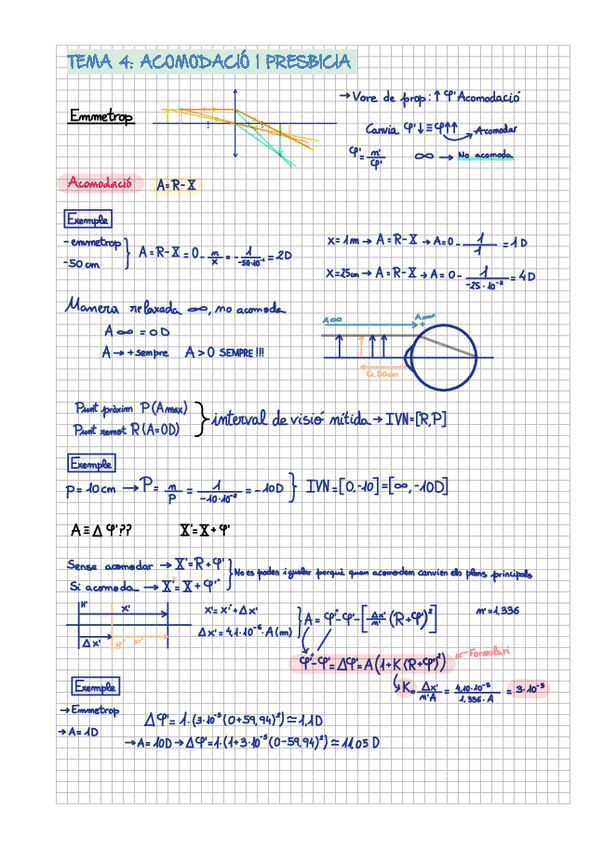 TEMA 4: ACOMODACIÓ I PRESBICIA
→ Vore de prop: ↑ φ' Acomodació
Emmetrop
Canvia φ'↓ ≡ φ↑↑ → Acomodar
φ' = m'/φ' ∞ → No acomoda
Acomodació A=R-X
Exemple
- emmetrop
- 50 cm
A = R-X = 0 - m/x = - 1/-50·10⁻² = 2D
X = 1m → A = R-X → A=0 - 1/1 = 1D
X=25cm → A = R-X → A=0 - 1/-25·10⁻² = 4D
Manera relaxada ∞, no acomoda
A∞ = 0D
A → + sempre A > 0 SEMPRE !!!
A∞
Amax
+
Ex. 50cm
Punt pròxim P (Amax)
Punt remot R (A=0D)
interval de visió nítida → IVN=[R,P]
Exemple
p = 10 cm → P = n/p = 1/-10·10⁻² = -10D } IVN=[0,-10]=[∞,-10D]
A ≡ Δ φ'?? X'=X+φ'
Sense acomodar → X'=R+φ'
Si acomoda → X'=X+φ'*
No es poden igualar perquè quan acomodem canvien els plans principals
H' X'
Δx' H' x'*
X'= x'*+Δx'
Δx' = 4,1·10⁻⁶·A (m)
A = φ'*-φ'-[Δx'/m' (R+φ')²]
m'=1,336
φ'*-φ'=Δφ'=A(1+K(R+φ')²) ← Formulari
K = Δx'/m'A = 4,10·10⁻⁵/1,336·A = 3·10⁻⁵
Exemple
→ Emmetrop
→ A= 1D
Δφ'= 1·(3·10⁻⁵(0+59,94)²) ≃ 1,1D
→ A= 10D → Δφ'=1·(1+3·10⁻⁵(0-59,94)²) ≃ 11,05 D